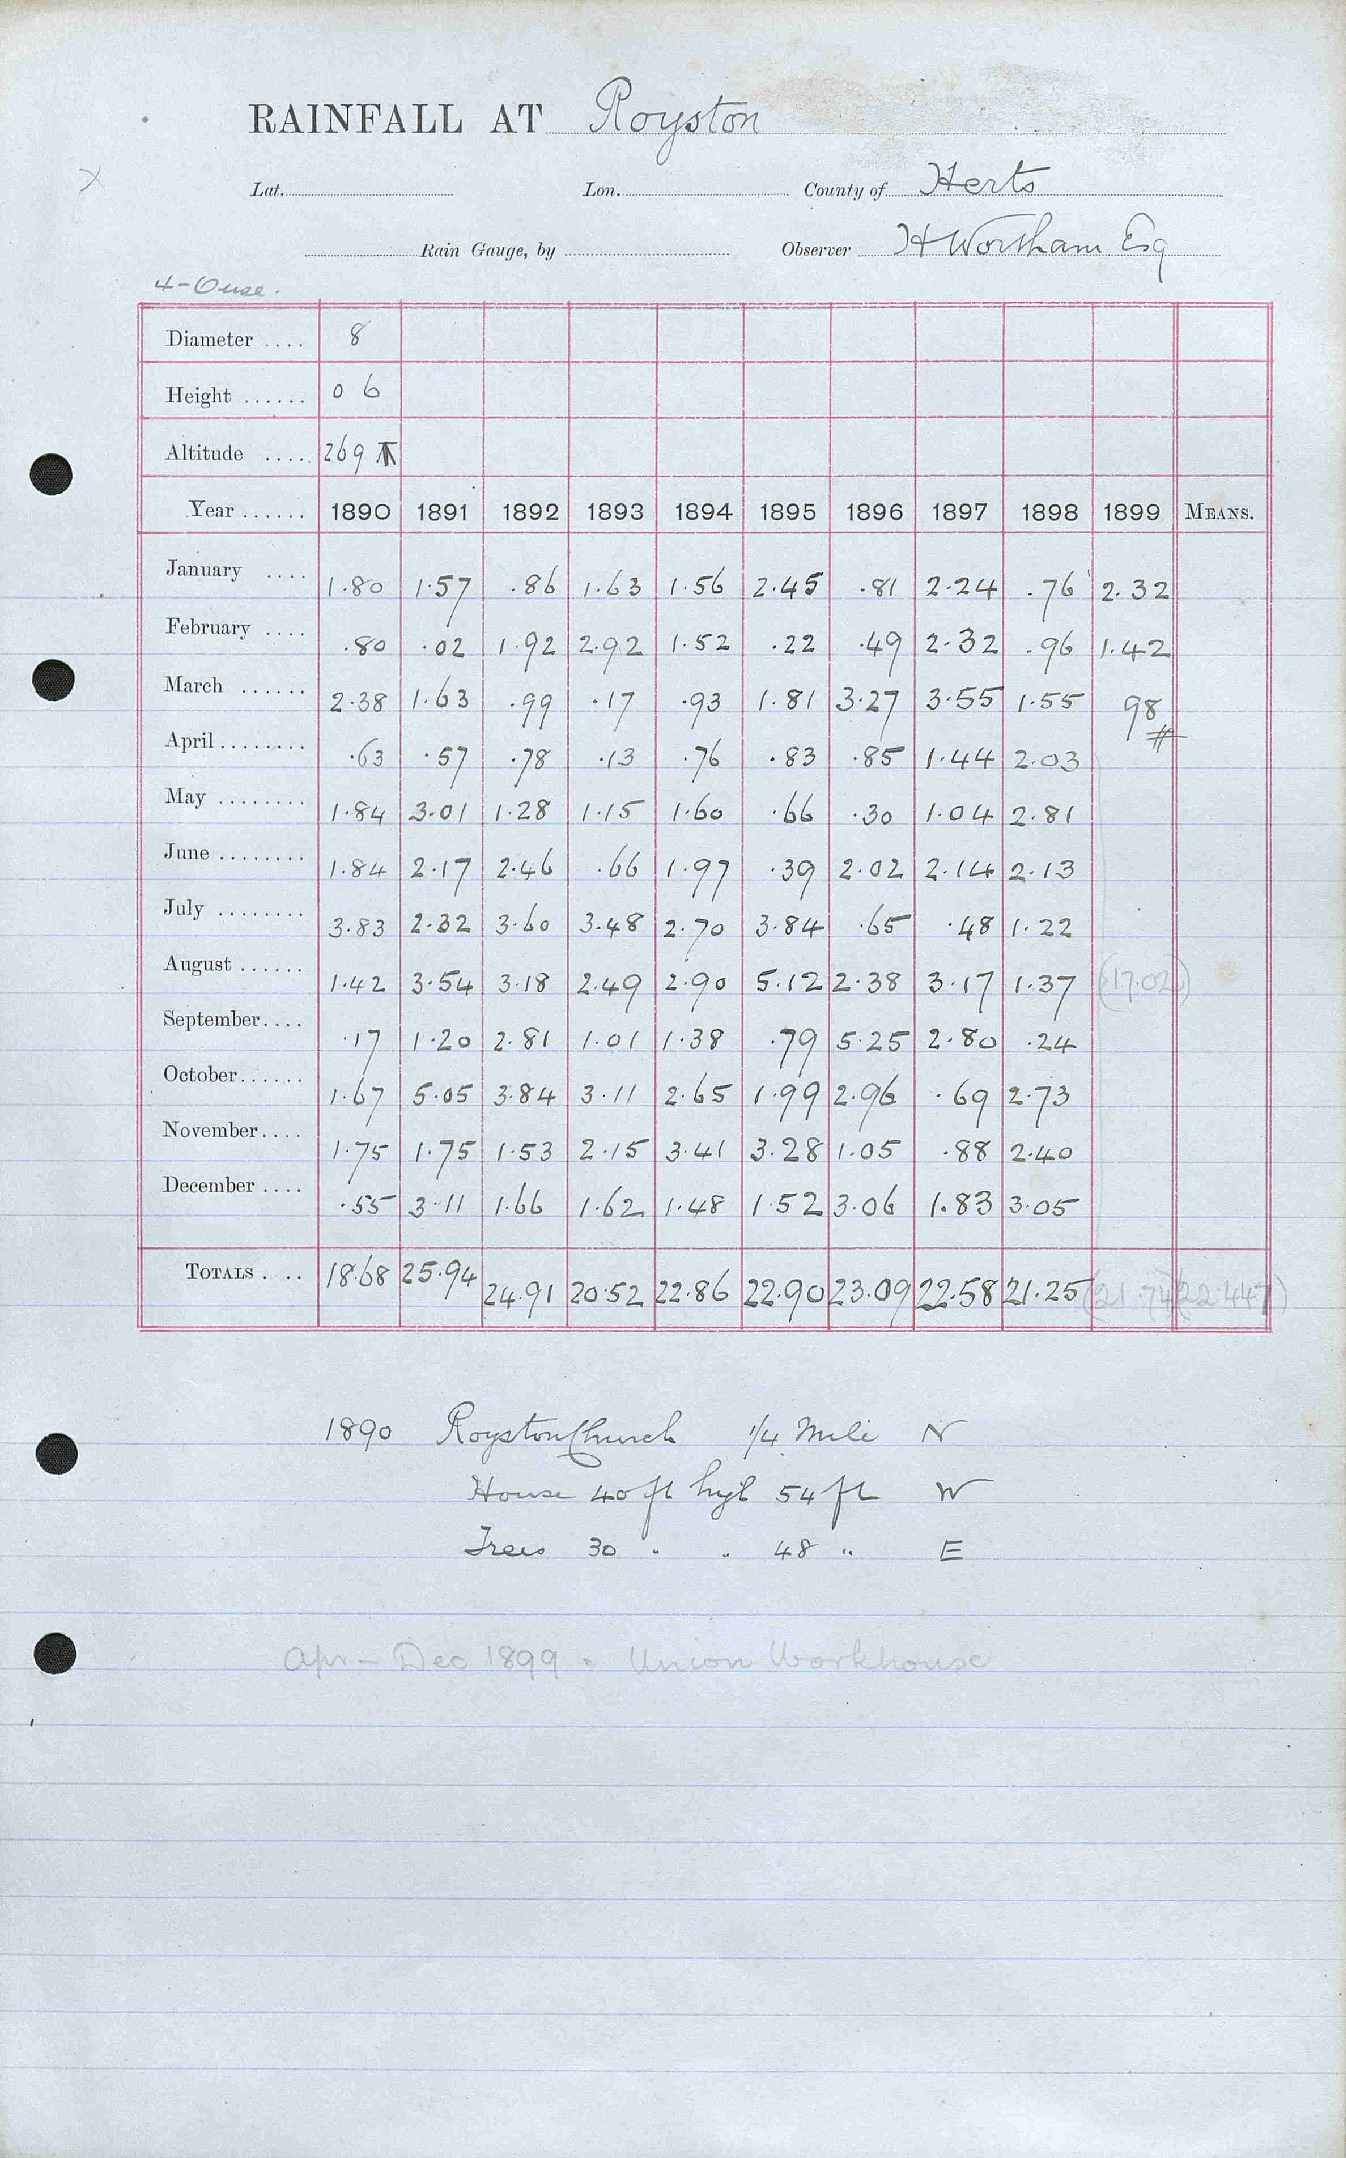 RAINFALL AT Royston
Lat. Lon. County of Herts
Rain Gauge, by Observer H Wortham Esq
4-Ouse.
Diameter .... 8
Height ...... 0 6
Altitude ..... 269
Year ...... 1890 1891 1892 1893 1894 1895 1896 1897 1898 1899 MEANS.
January .... 1.80 1.57 .86 1.63 1.56 2.45 .81 2.24 .76 2.32
February .... .80 .02 1.92 2.92 1.52 .22 .49 2.32 .96 1.42
March ...... 2.38 1.63 .99 .17 .93 1.81 3.27 3.55 1.55 98
April ........ .63 .57 .78 .13 .76 .83 .85 1.44 2.03 #
May ........ 1.84 3.01 1.28 1.15 1.60 .66 .30 1.04 2.81
June ........ 1.84 2.17 2.46 .66 1.97 .39 2.02 2.14 2.13
July ........ 3.83 2.32 3.60 3.48 2.70 3.84 .65 .48 1.22
August ...... 1.42 3.54 3.18 2.49 2.90 5.12 2.38 3.17 1.37 (17.02)
September.... .17 1.20 2.81 1.01 1.38 .79 5.25 2.80 .24
October....... 1.67 5.05 3.84 3.11 2.65 1.99 2.96 .69 2.73
November.... 1.75 1.75 1.53 2.15 3.41 3.28 1.05 .88 2.40
December .... .55 3.11 1.66 1.62 1.48 1.52 3.06 1.83 3.05
TOTALS .... 18.68 25.94 24.91 20.52 22.86 22.90 23.09 22.58 21.25 (21.74) (22.447)
1890 Royston Church 1/4 Mile N
House 40 ft high 54 ft W
Trees 30 " " 48 " E
Apr - Dec 1899 = Union Workhouse